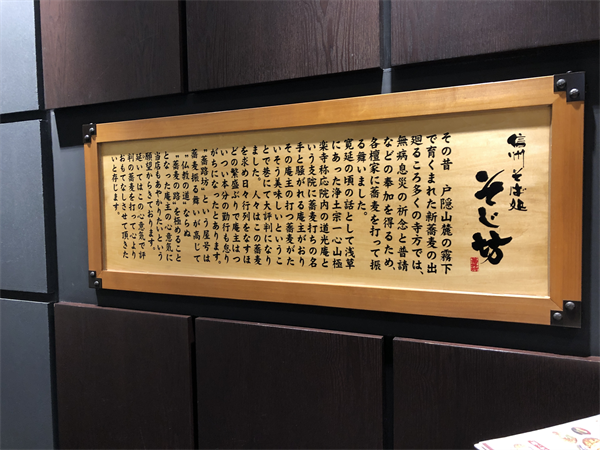 信州そば処
そじ坊
その昔 戸隠山麓の霧下
で育くまれた新蕎麦の出
廻るころ多くの寺方では、
無病息災の祈念と普請
などの奉加を得るため、
各檀家に蕎麦を打って振
る舞いました。
寛延の頃の話として浅草
にあった浄土宗一心山極
楽寺称往院内の道光庵と
いう支院に蕎麦打ちの名
手と騒がれる庵主がおり
その庵主の打つ蕎麦がた
いそう美味しいというこ
とで、にわかに大評判になり
ました。人々はこの蕎麦
を求め日々行列をなすほ
どの繁盛ぶり。庵主はつ
いつい本分の勤行も怠り
がちになったとあります。
“蕎路坊”という屋号は
蕎麦振る舞いが高じて
“仏教の道”ならぬ
“蕎麦の路”を極めること
となった庵主の心意気に
当店もあやかりたいという
願望からきております。
延いてはこの心意気で評
判の蕎麦を打って心より
おもてなしさせて頂きた
いと存じます。